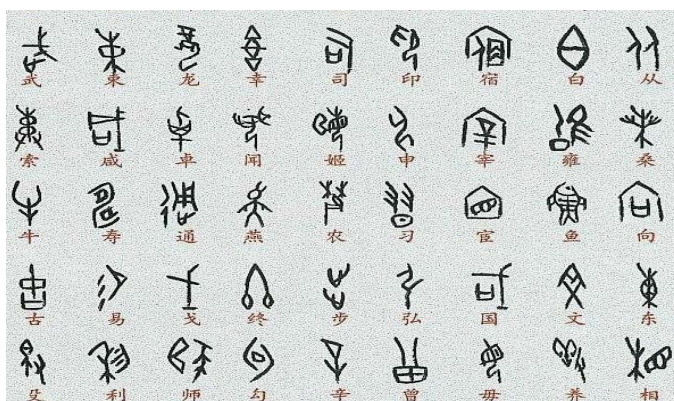 武 束 龙 幸 司 印 宿 白 从
索 咸 卓 闻 姬 申 宰 雍 桑
牛 寿 通 燕 农 习 宦 鱼 向
古 易 戈 终 步 弘 国 文 东
殳 利 师 勾 辛 曾 毋 养 相